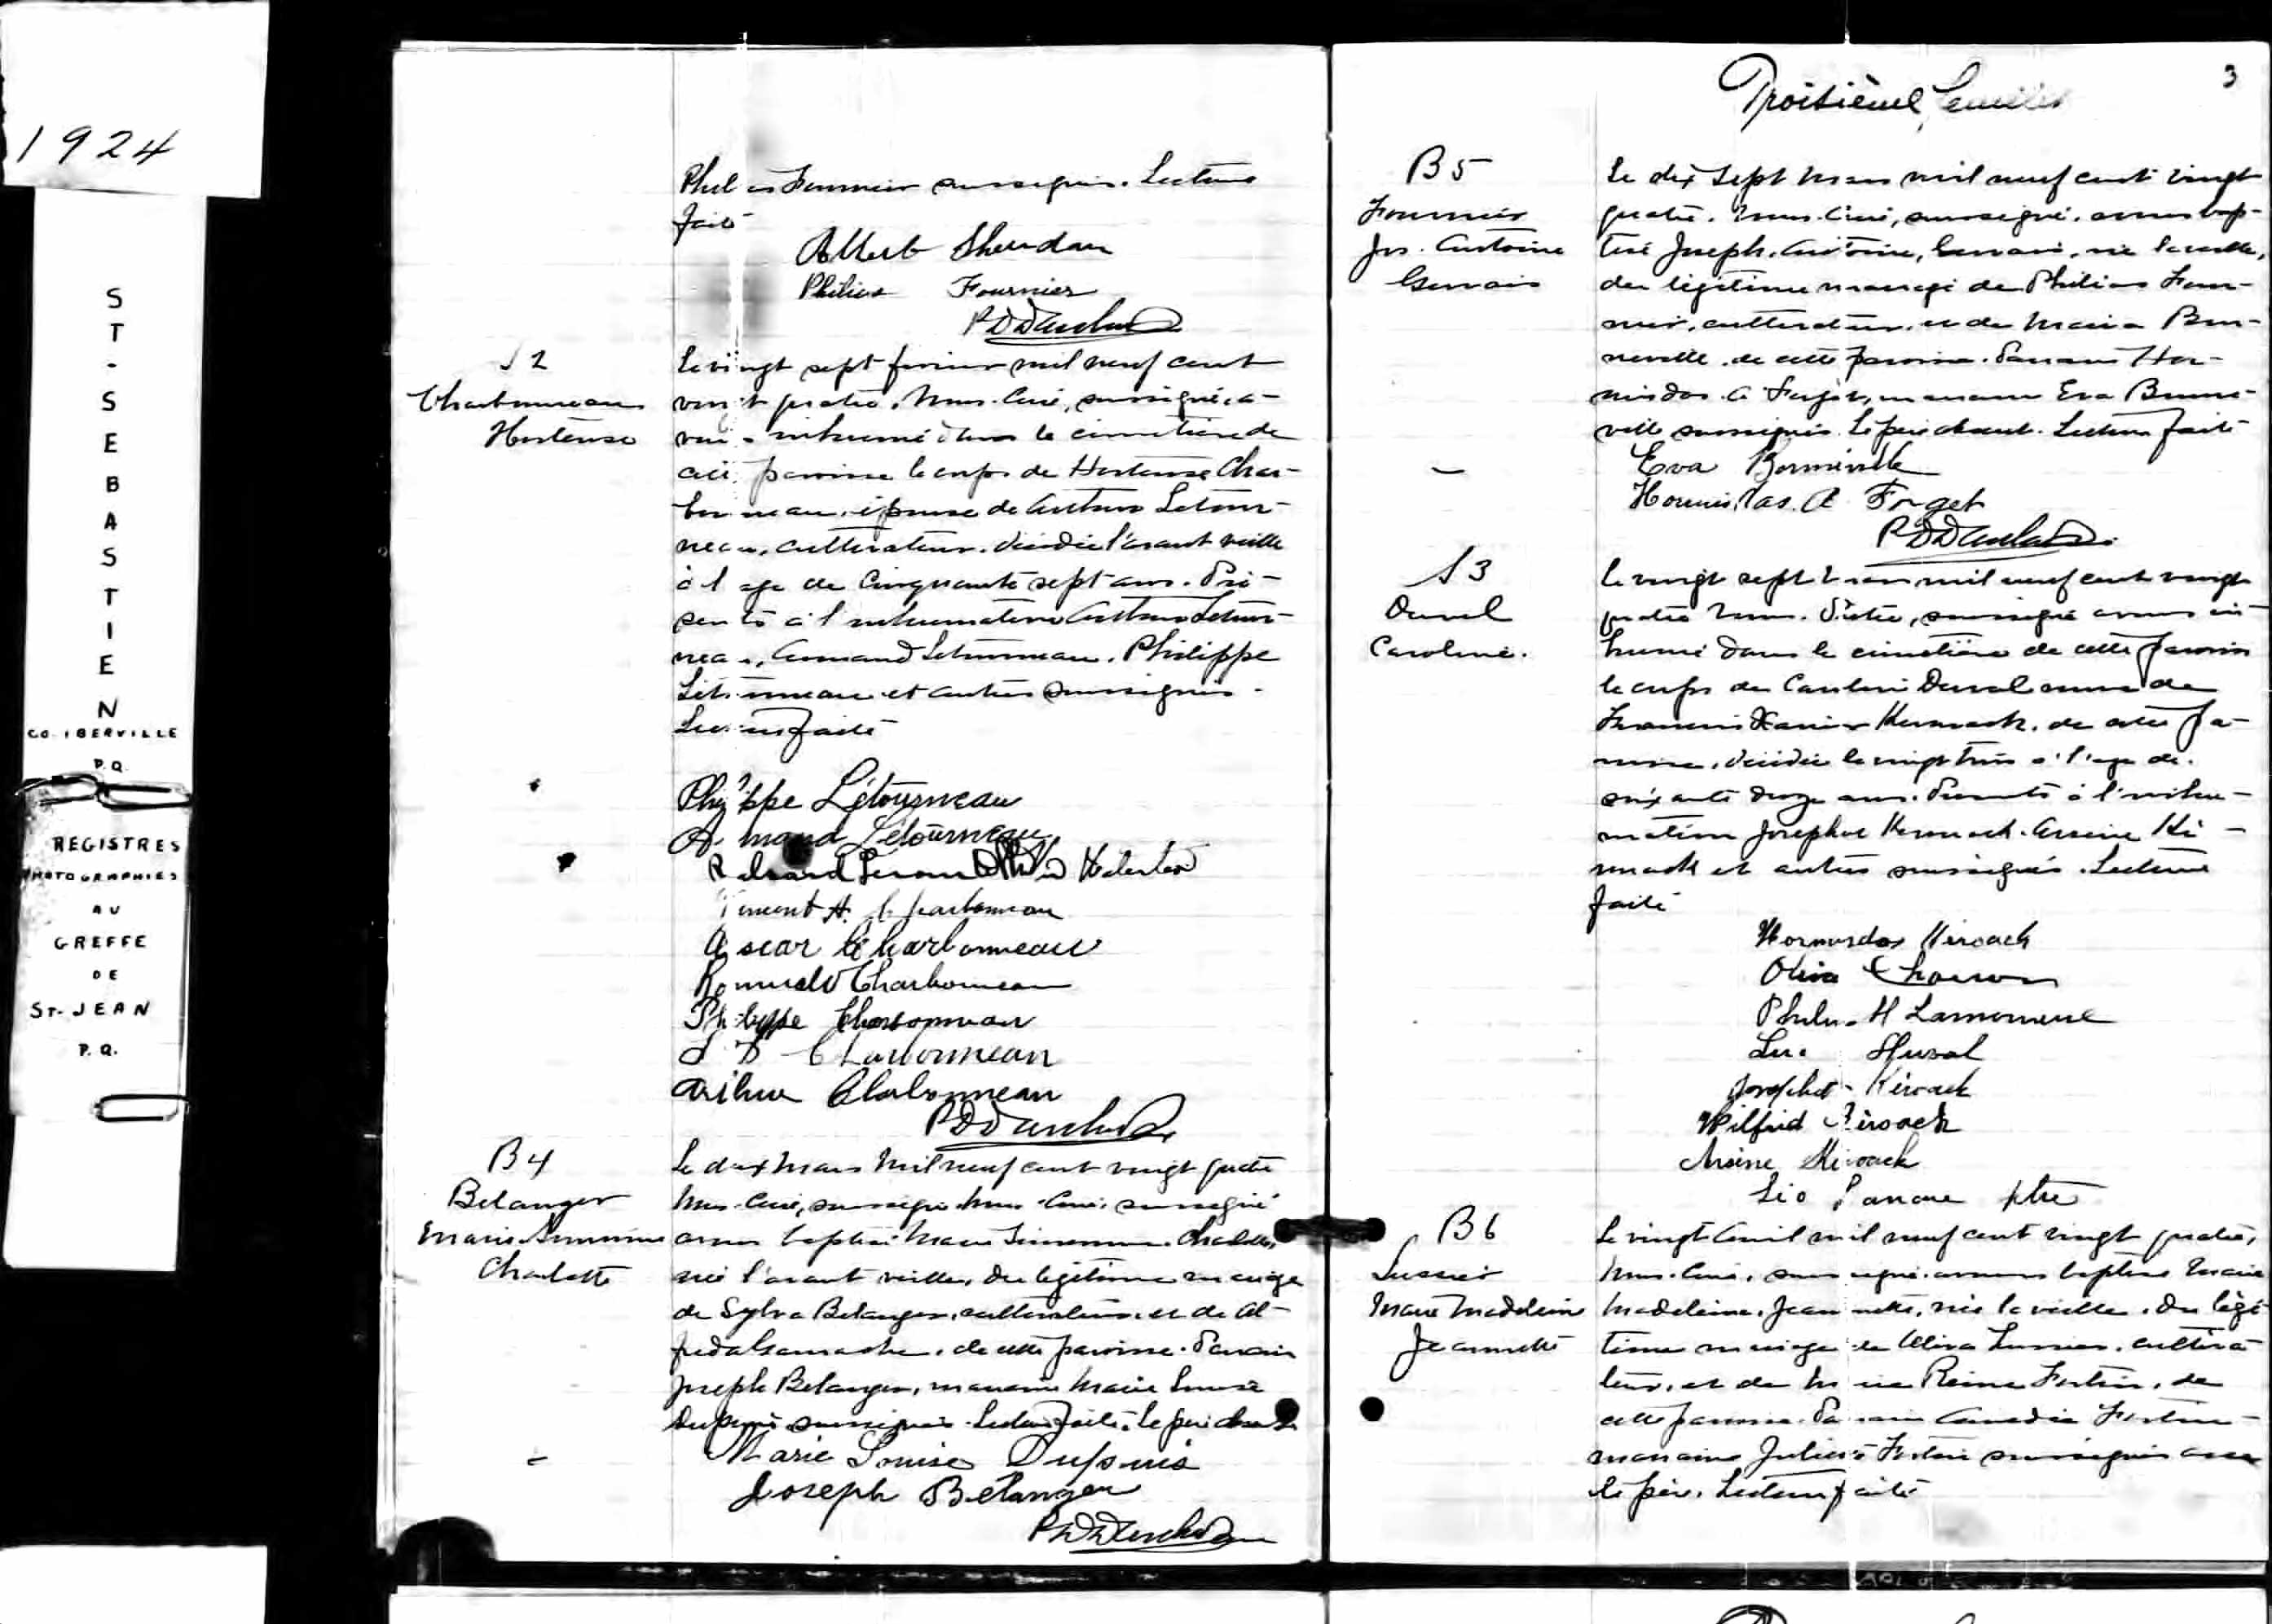 1924
ST-SEBASTIEN
CO. IBERVILLE
P.Q.
REGISTRES
PHOTOGRAPHIES
AU
GREFFE
DE
ST-JEAN
P.Q.
Fournier soussignés. Lecture
faite
Albert Sheridan
Philias Fournier
S 2
Charbonneau
Hortense
Le vingt sept février mil neuf cent
vingt quatre, Nous Curé, soussigné, a-
vons inhumé dans le cimetière de
cette paroisse le corps de Hortense Char-
bonneau, épouse de Arthur Létour-
neau, cultivateur, décédée l'avant veille
à l'age de Cinquante sept ans. Pré-
sents à l'inhumation Arthur Létour-
neau, Armand Létourneau, Philippe
Létourneau et autres soussignés.
Lecture faite
Philippe Létourneau
Armand Létourneau
H. Charbonneau
Oscar Charbonneau
Romuald Charbonneau
Philippe Charbonneau
Charbonneau
Arthur Charbonneau
B 4
Belanger
Marie
Charlotte
Le dix Mars Mil neuf cent vingt quatre
Nous Curé, soussigné Nous Curé, soussigné
avons baptisé Marie Charlotte,
née l'avant veille, du légitime mariage
de Sylva Belanger, cultivateur, et de Al-
de cette paroisse. Parrain
Joseph Belanger, marraine Marie Louise
Dupuis soussignés. Lecture faite. Le père
Marie Louise Dupuis
Joseph Bélanger
3
Troisième feuillet
B 5
Fournier
Jos. Antoine
Gervais
Le dix Sept Mars mil neuf cent vingt
quatre, Nous Curé, soussigné, avons bap-
tisé Joseph, Antoine, Gervais, né la veille,
du légitime mariage de Philias Four-
nier, cultivateur, et de Maria Bon-
neville de cette paroisse. Parrain Hor-
midas A Forget, marraine Eva Bonne-
ville soussignés. Le père absent. Lecture faite
Eva Bonneville
Hormisdas. A Forget
S 3
Duval
Caroline.
Le vingt sept Mars mil neuf cent vingt
quatre Nous Prêtre, soussigné avons in-
humé dans le cimetière de cette paroisse
le corps de Caroline Duval veuve de
François Xavier Kerouack, de cette pa-
roisse, décédée le vingt trois à l'age de
soixante douze ans. Présents à l'inhu-
mation Josephat Kerouack Arsène Ké-
rouack et autres soussignés. Lecture
faite
Hormisdas Kéroack
Oliva
H Lamoureux
Duval
Josephat Kéroack
Wilfrid Kéroack
Arsène Kéroack
Léo ptre
B 6
Lussier
Marie Madeleine
Jeannette
Le vingt Avril mil neuf cent vingt quatre,
Nous Curé, soussigné avons baptisé Marie
Madeleine, Jeannette, née la veille, du légi-
time mariage de Oliva Lussier, cultiva-
teur, et de Marie Reine Fortin, de
cette paroisse. Parrain Fortin
marraine Fortin soussignés avec
le père. Lecture faite